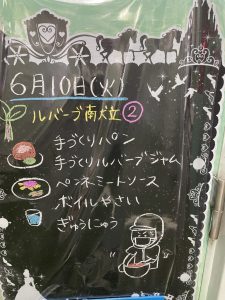 6月10日(火)
ルバーブ南大立②
手づくりパン
手づくりルバーブジャム
ペンネミートソース
ボイルやさい
ぎゅうにゅう